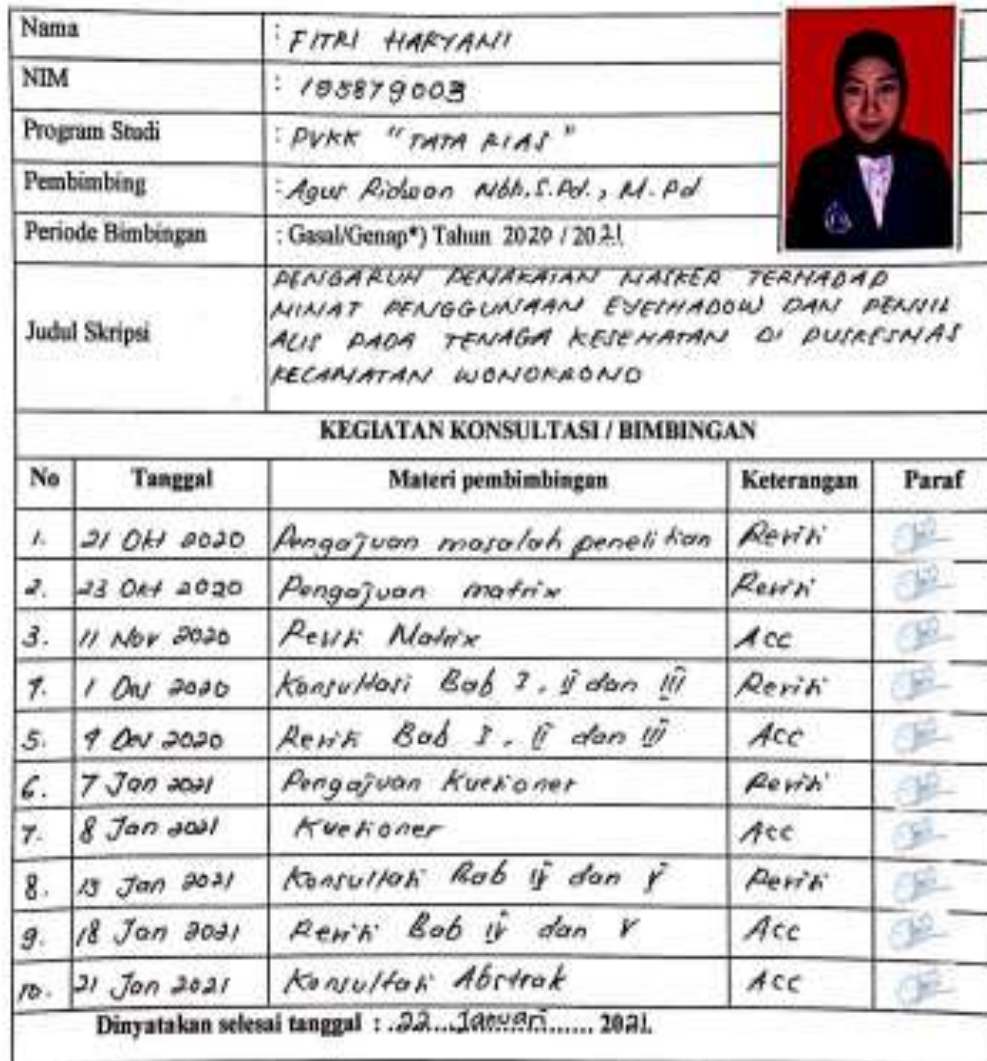 Nama : FITRI HARYANI
NIM : 195879003
Program Studi : PVKK "TATA RIAS"
Pembimbing : Agus Ridwan Mbh, S.Pd., M.Pd
Periode Bimbingan : Gasal/Genap*) Tahun 2020 / 2021
Judul Skripsi
PENGARUH PEMAKAIAN MASKER TERHADAP
MINAT PENGGUNAAN EYESHADOW DAN PENSIL
ALIS PADA TENAGA KESEHATAN DI PUSKESMAS
KECAMATAN WONOKROMO
KEGIATAN KONSULTASI / BIMBINGAN
No Tanggal Materi pembimbingan Keterangan Paraf
1. 21 Okt 2020 Pengajuan masalah penelitian Revisi
2. 23 Okt 2020 Pengajuan matrix Revisi
3. 11 Nov 2020 Revisi Matrix Acc
4. 1 Des 2020 Konsultasi Bab I, II dan III Revisi
5. 9 Des 2020 Revisi Bab I, II dan III Acc
6. 7 Jan 2021 Pengajuan Kuesioner Revisi
7. 8 Jan 2021 Kuesioner Acc
8. 13 Jan 2021 Konsultasi Bab IV dan V Revisi
9. 18 Jan 2021 Revisi Bab IV dan V Acc
10. 21 Jan 2021 Konsultasi Abstrak Acc
Dinyatakan selesai tanggal : 22 Januari 2021